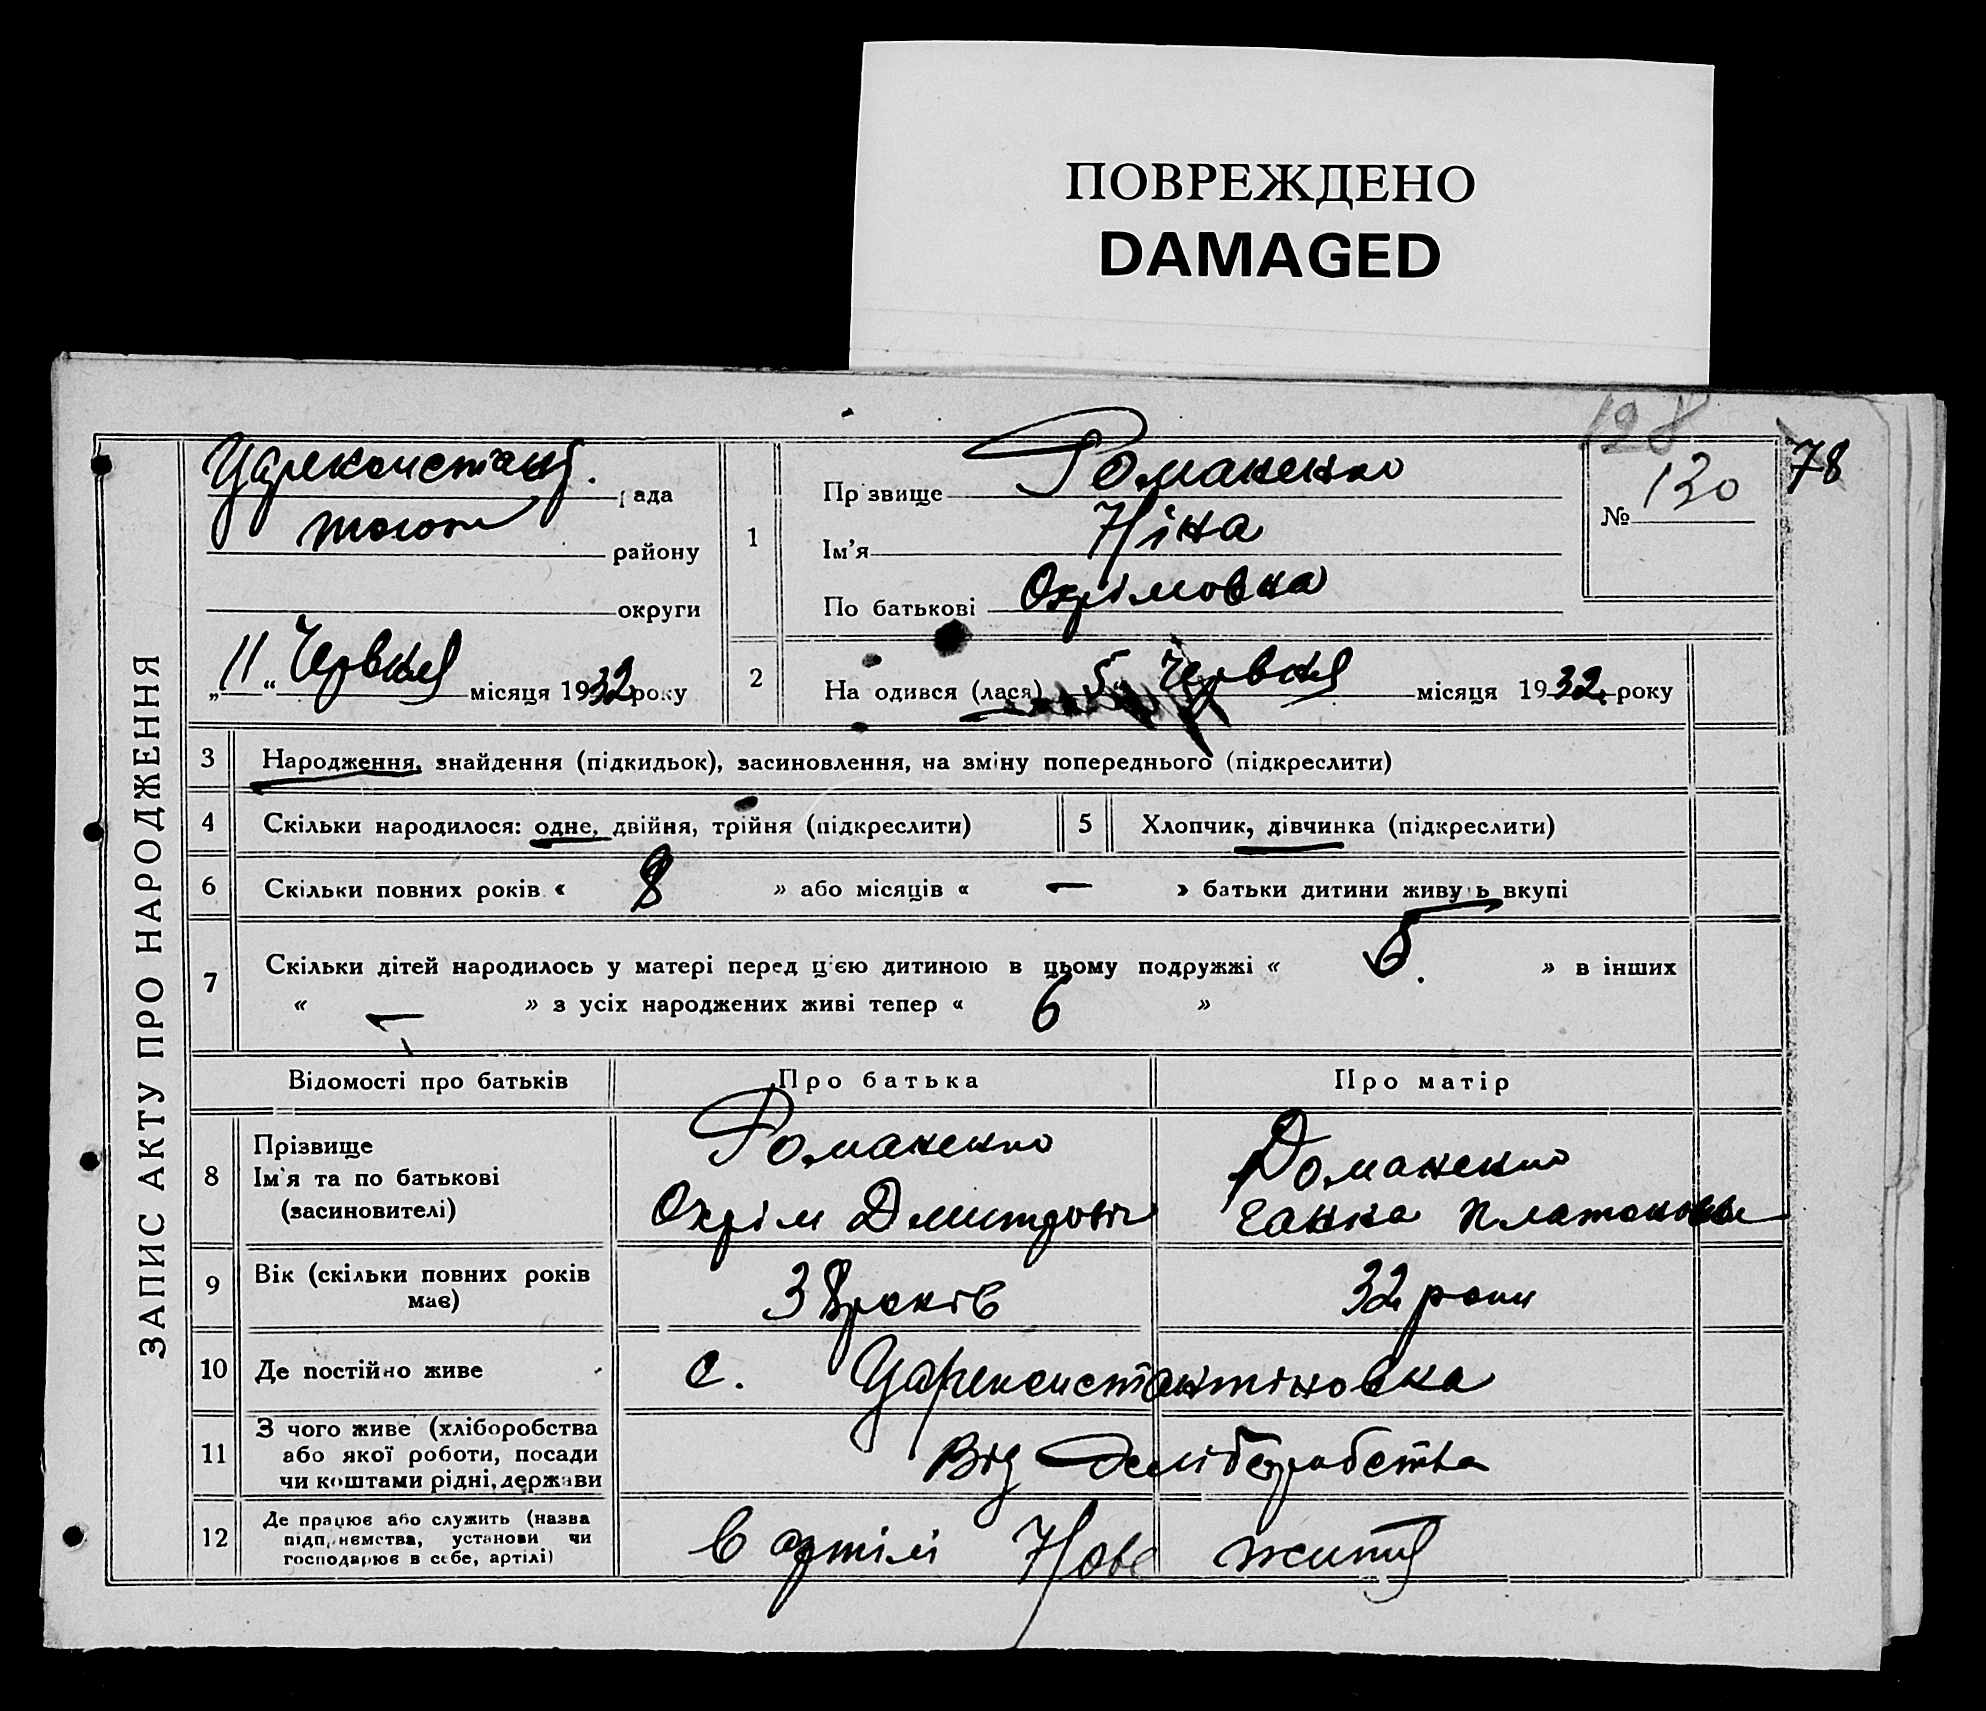 ПОВРЕЖДЕНО
DAMAGED
128
78
ЗАПИС АКТУ ПРО НАРОДЖЕННЯ
Цареконстант. рада
району
округи
„11“ Червня місяця 1932 року
1
Прізвище Романенко
Ім'я Ніна
По батькові Охрімовна
№ 130
2
На одився (лася) 5 Червня місяця 1932 року
3 Народження, знайдення (підкидьок), засиновлення, на зміну попереднього (підкреслити)
4 Скільки народилося: одне, двійня, трійня (підкреслити) 5 Хлопчик, дівчинка (підкреслити)
6 Скільки повних років « 8 » або місяців « — » батьки дитини живуть вкупі
7 Скільки дітей народилось у матері перед цією дитиною в цьому подружжі « 6. » в інших
« — » з усіх народжених живі тепер « 6 »
Відомості про батьків Про батька Про матір
8 Прізвище
Ім'я та по батькові
(засиновителі)
Романенко
Охрім Дмитрович
Романенко
Ганна Платоновна
9 Вік (скільки повних років
має)
38 років 32 роки
10 Де постійно живе с. Цареконстантіновка
11 З чого живе (хліборобства
або якої роботи, посади
чи коштами рідні, держави
Від
12 Де працює або служить (назва
підприємства, установи чи
господарює в себе, артілі)
в артілі Нове життя